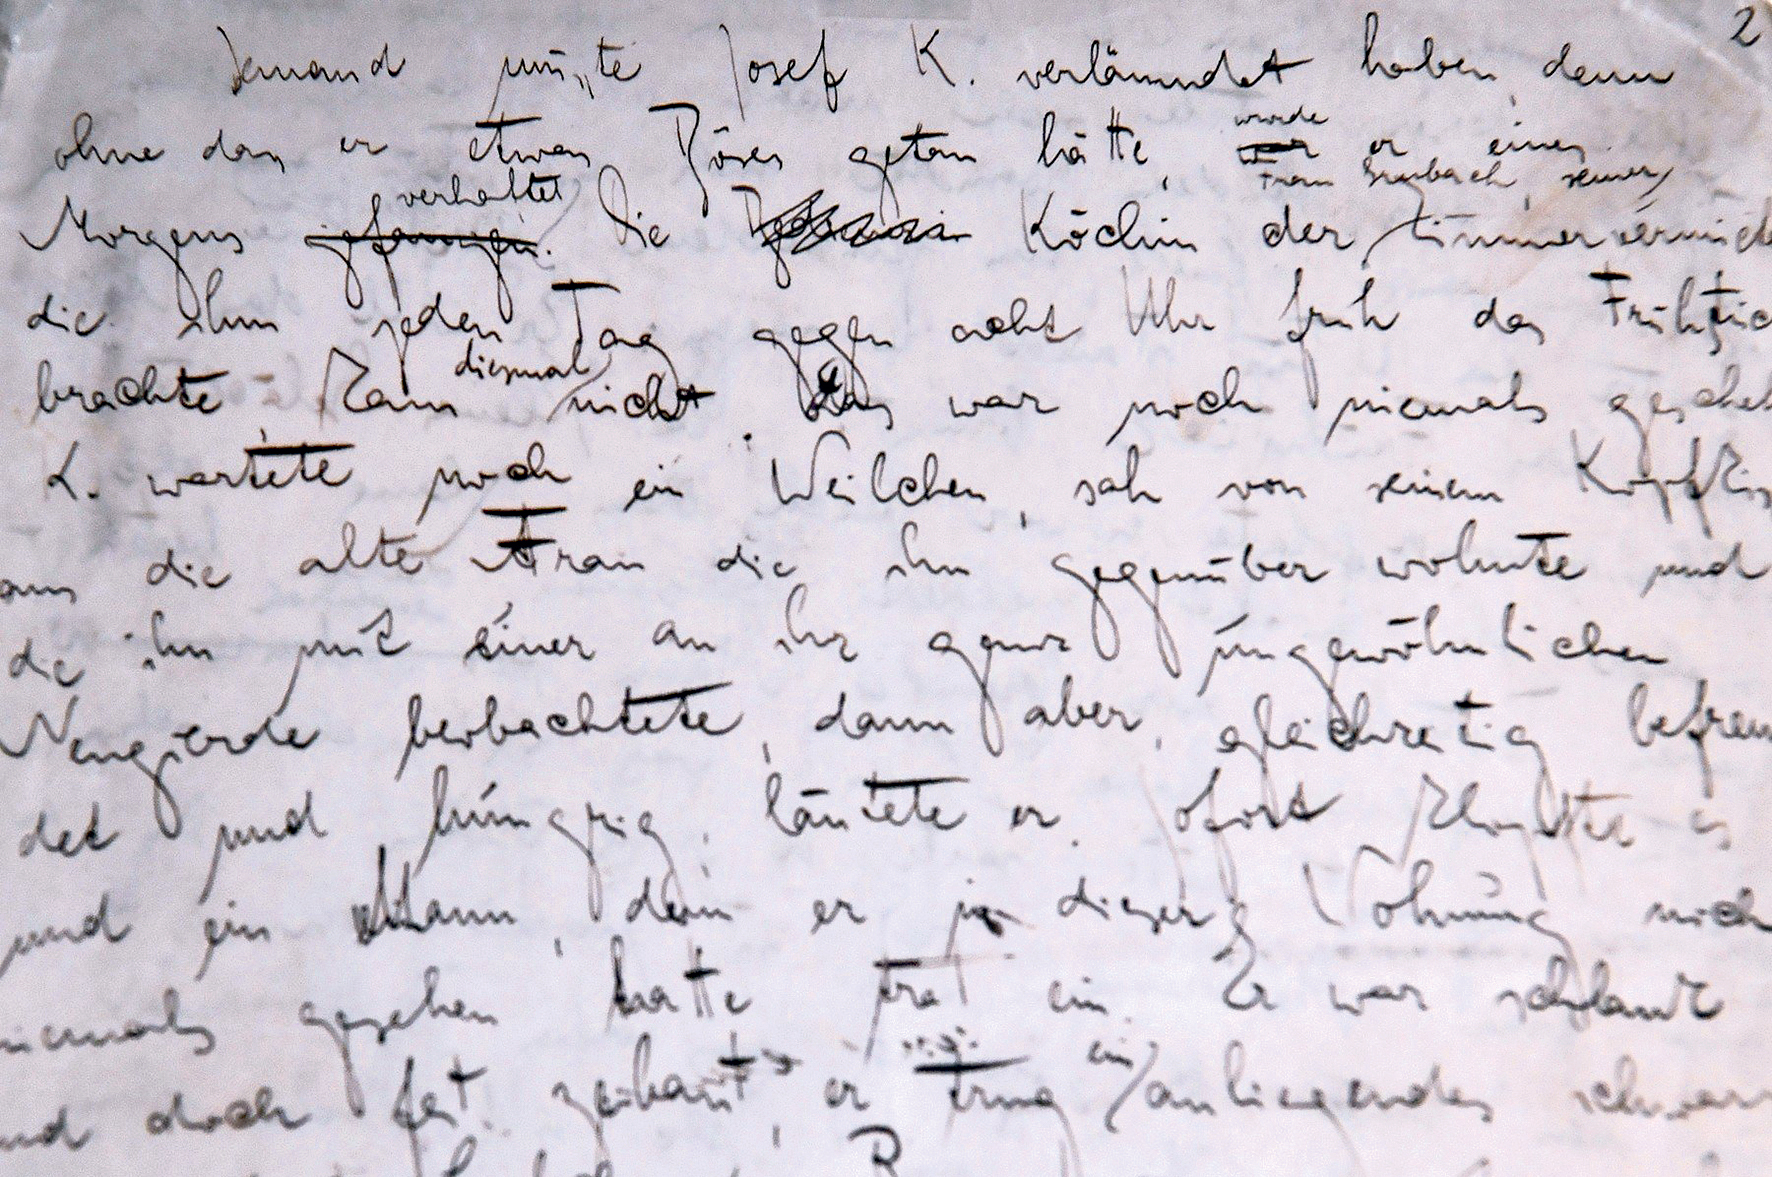 2
Jemand musste Josef K. verläumdet haben, denn
ohne dass er etwas Böses getan hätte, war wurde er eines
Morgens gefangen verhaftet. Die Köchin der Frau Grubach, seiner Zimmervermiet
die ihm jeden Tag gegen acht Uhr früh das Frühstüc
brachte, kam diesmal nicht. Das war noch niemals gescheh
K. wartete noch ein Weilchen, sah von seinem Kopfkis
aus die alte Frau die ihm gegenüber wohnte und
die ihn mit einer an ihr ganz ungewöhnlichen
Neugierde beobachtete, dann aber, gleichzeitig befrem
det und hungrig, läutete er. Sofort klopfte es
und ein Mann, den er in dieser Wohnung noch
niemals gesehen hatte trat ein. Er war schlank
und doch fest gebaut, er trug ein anliegendes schwar